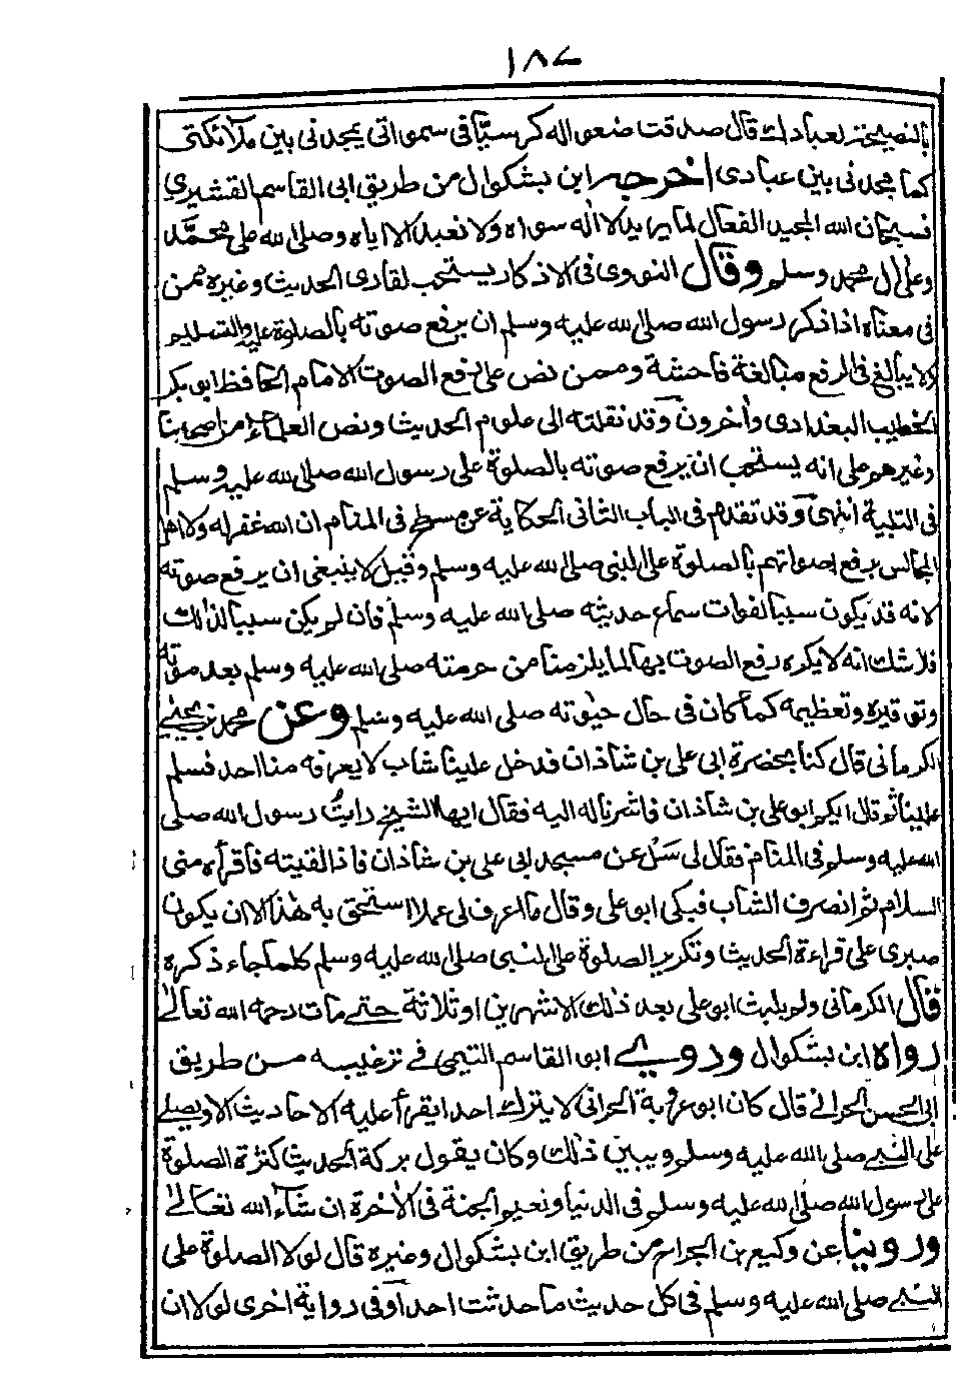 ١٨٧
بالنصيحة لعبادك قال صدقت ضعوا له كرسيا في سمواتي يمجدني بين ملآئكتي
كما مجدني بين عبادي اخرجه ابن بشكوال من طريق ابي القاسم القشيري
فسبحان الله المجيد الفعال لما يريد لا اله سواه ولا نعبد الا اياه وصلى الله على محمد
وعلى ال محمد وسلم وقال النووي في الاذكار يستحب لقارى الحديث وغيره ممن
في معناه اذا ذكر رسول الله صلى الله عليه وسلم ان يرفع صوته بالصلوة عليه والتسليم
ولا يبالغ في الرفع مبالغة فاحشة وممن نص على رفع الصوت الامام الحافظ ابو بكر
الخطيب البغدادى وآخرون وقد نقلته الى علوم الحديث ونص العلماء من اصحابنا
وغيرهم على انه يستحب ان يرفع صوته بالصلوة على رسول الله صلى الله عليه وسلم
في التلبية انتهى وقد تقدم في الباب الثانى الحكاية عن مسطح في المنام ان الله غفر له ولاهل
المجالس برفع اصواتهم بالصلوة على النبى صلى الله عليه وسلم وقيل لا ينبغي ان يرفع صوته
لانه قد يكون سببا لفوات سماع حديثه صلى الله عليه وسلم فان لم يكن سببا لذلك
فلا شك انه لا يكره رفع الصوت بها لما يلزمنا من حرمته صلى الله عليه وسلم بعد موته
وتوقيره وتعظيمه كما كان في حال حيوته صلى الله عليه وسلم وعن محمد بن يحيى
الكرمانى قال كنا بحضرة ابى على بن شاذان فدخل علينا شاب لا يعرفه منا احد فسلم
علينا ثم قال ايكم ابو على بن شاذان فاشرنا له اليه فقال ايها الشيخ رايت رسول الله صلى
الله عليه وسلم في المنام فقال لى سل عن مسجد ابى على بن شاذان فاذا لقيته فاقرأه منى
السلام ثم انصرف الشاب فبكى ابو على وقال ما اعرف لى عملا استحق به هذا الا ان يكون
صبرى على قراءة الحديث وتكرير الصلوة على النبى صلى الله عليه وسلم كلما جاء ذكره
قال الكرمانى ولم يلبث ابو على بعد ذلك الا شهرين او ثلاثة حتى مات رحمه الله تعالى
رواه ابن بشكوال وروى ابو القاسم التيمى في ترغيبه من طريق
ابى الحسن الحرانى قال كان ابو عروبة الحرانى لا يترك احدا يقرأ عليه الاحاديث الا ويصلى
على النبى صلى الله عليه وسلم ويبين ذلك وكان يقول بركة الحديث كثرة الصلوة
على رسول الله صلى الله عليه وسلم في الدنيا ونعيم الجنة في الآخرة ان شآء الله تعالى
وروينا عن وكيع بن الجراح من طريق ابن بشكوال وغيره قال لو لا الصلوة على
النبى صلى الله عليه وسلم في كل حديث ما حدثت احدا وفى رواية اخرى لو لا ان